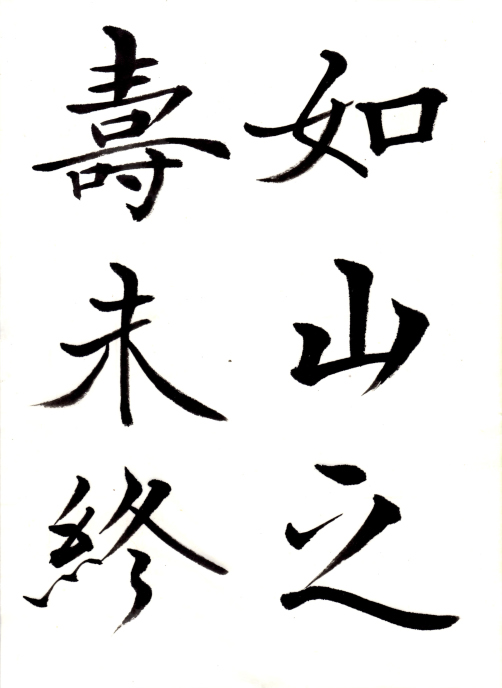 如山之
壽未終